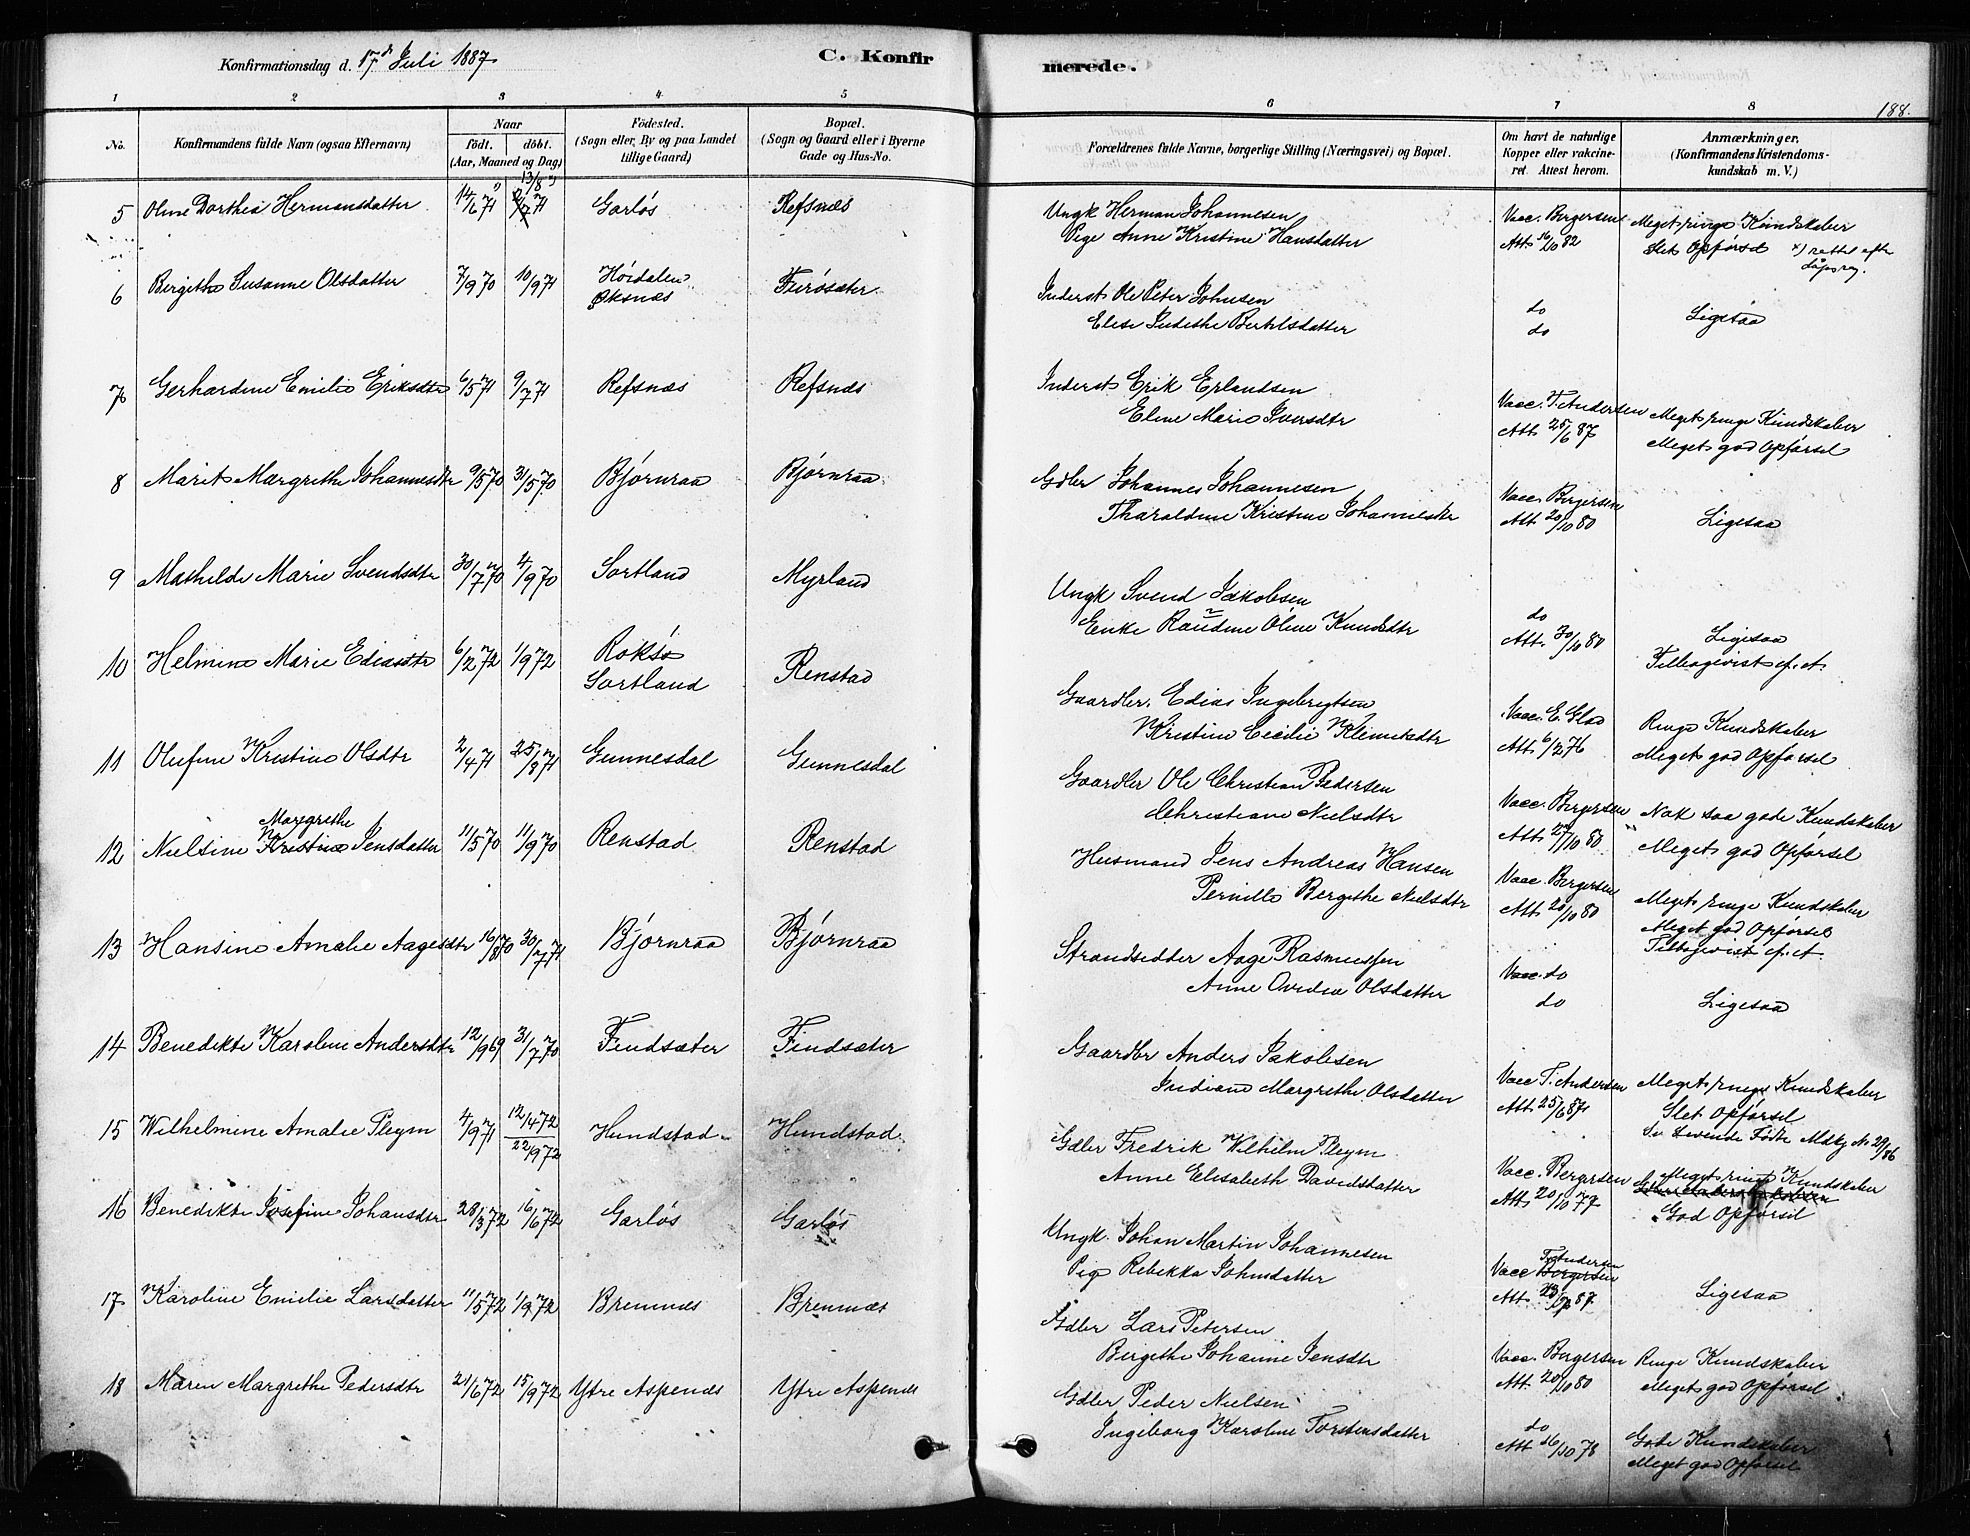 Konfirmationsdag d. 17de Juli 1887
C. Konfirmerede.
188.
1 2 3 4 5 6 7 8
No.
Konfirmandens fulde Navn (ogsaa Efternavn)
Naar
født. døbt.
(Aar, Maaned og Dag)
Fødested.
(Sogn eller, By og paa Landet
tillige Gaard)
Bopæl.
(Sogn og Gaard eller i Byerne
Gade og Hus-No.
Forældrenes fulde Navne, borgerlige Stilling (Næringsvei) og Bopæl.
Om havt de naturlige
Kopper eller vakcine-
ret. Attest herom.
Anmærkninger,
(Konfirmandens Kristendoms-
kundskab m. V.)
5 Oline Dorthea Hermansdatter 14/6 71 13/8 71 Garløs Refsnæs
Ungk Herman Johannesen Vacc. Bergersen Meget ringe Kundskaber
Pige Anne Kristine Hansdatter Att 16/10 82 Slet Opførsel x) rettet efter
Dåpsreg.
6 Bergithe Susanne Olsdatter 7/9 70 10/9 71 Høidalen Øksnæs Furøsæter
Inderst Ole Peter Johnsen do Ligesaa
Elise Judithe Bertelsdatter do
7 Gerhardine Emilie Eriksdtr 6/5 71 9/7 71 Refsnæs Refsnæs
Inderst Erik Erlandsen Vacc. T. Andersen Meget ringe Kundskaber
Eline Marie Iversdtr Att 25/6 87 Meget god Opførsel
8 Marit Margrethe Johannesdtr 9/5 70 31/5 70 Bjørnraa Bjørnraa
Gdbr Johannes Johannesen Vacc. Bergersen Ligesaa
Tharaldine Kristine Johannesdtr Att 20/10 80
9 Mathilde Marie Svendsdtr 30/7 70 4/9 70 Sortland Myrland
Ungk Svend Jakobsen do Ligesaa
Enke Randine Oline Knudsdtr Att. 30/10 80 Tilbagevist
10 Helmine Marie Ediasdtr 6/2 72 1/9 72 Roksø Sortland Renstad
Gaardbr. Edias Ingebrigtsen Vacc. E. Glad Ringe Kundskaber
Kristine Cecilie Klemetsdtr Att 6/2 76 Meget god Opførsel
11 Olufine Kristine Olsdtr 2/4 71 25/8 71 Gunnesdal Gunnesdal
Gaardbr Ole Christian Pedersen Vacc. Bergersen Nok saa gode Kundskaber
Christiane Nielsdtr Att 27/10 80 Meget god Opførsel
Margrethe
12 Nielsine Kristine Jensdatter 11/5 70 11/9 70 Renstad Renstad
Husmand Jens Andreas Hansen Vacc. Bergersen Meget ringe Kundskaber
Pernille Bergithe Nielsdtr Att 20/10 80 Meget god Opførsel
Tilbagevist
13 Hansine Amalie Aagesdtr 16/8 70 30/7 71 Bjørnraa Bjørnraa
Strandsidder Aage Rasmussen Vacc. do Ligesaa
Anne Ovidia Olsdatter do
14 Benedikte Karoline Andersdtr 12/9 69 31/7 70 Findsæter Findsæter
Gaardbr Anders Jakobsen Vacc T. Andersen Meget ringe Kundskaber
Indiane Margrethe Olsdatter Att 25/6 87 Slet Opførsel
15 Wilhelmine Amalie Pleym 4/9 71 12/4 72 22/9 72 Hundstad Hundstad
Se Levende Fødte
Gdbr Fredrik Wilhelm Pleym Vacc. Bergersen Meget ringe Kundskaber
Anne Elisabeth Davidsdatter Att 20/10 77 God Opførsel
16 Benedikte Josefine Johansdtr 28/3 72 16/6 72 Garløs Garløs
Ungk. Johan Martin Johannesen T. Andersen Ligesaa
Pige Rebekka Johnsdatter Vacc Bergersen
17 Karoline Emilie Larsdatter 11/5 72 1/9 72 Bremnes Bremnæs
Gdbr Lars Petersen Vacc. Bergersen Ringe Kundskaber
Bergithe Johanne Jensdtr Att. 20/10 80 Meget god Opførsel
18 Maren Margrethe Pedersdtr 21/6 72 15/9 72 Ytre Aspenes Ytre Aspenes
Gdbr Peder Nielsen do Gode Kundskaber
Ingeborg Karoline Torstensdatter Att 16/10 78 Meget god Opførsel